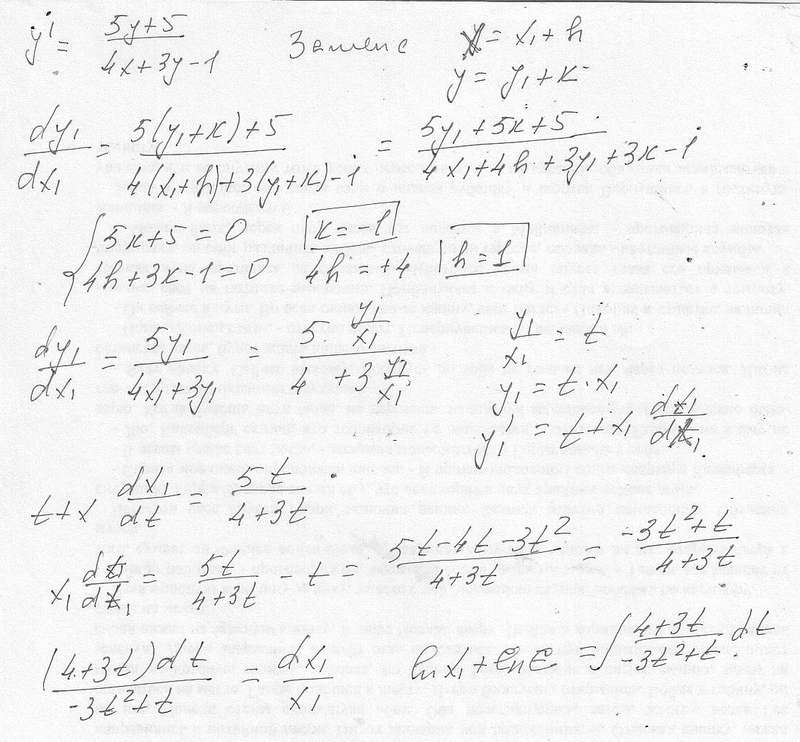 y' = (5y+5)/(4x+3y-1) Замена x = x₁ + h
y = y₁ + к
dy₁/dx₁ = (5(y₁+к)+5)/(4(x₁+h)+3(y₁+к)-1) = (5y₁+5к+5)/(4x₁+4h+3y₁+3к-1)
{5к+5=0 к=-1
4h+3к-1=0 4h=+4 h=1
dy₁/dx₁ = 5y₁/(4x₁+3y₁) = (5 y₁/x₁)/(4+3 y₁/x₁) y₁/x₁ = t
y₁ = t·x₁
y₁ = t + x₁ dt/dx₁
t+x dx₁/dt = 5t/(4+3t)
x₁ dt/dx₁ = 5t/(4+3t) - t = (5t-4t-3t²)/(4+3t) = (-3t²+t)/(4+3t)
(4+3t)dt/(-3t²+t) = dx₁/x₁ ln x₁ + ln C = ∫ (4+3t)/(-3t²+t) dt